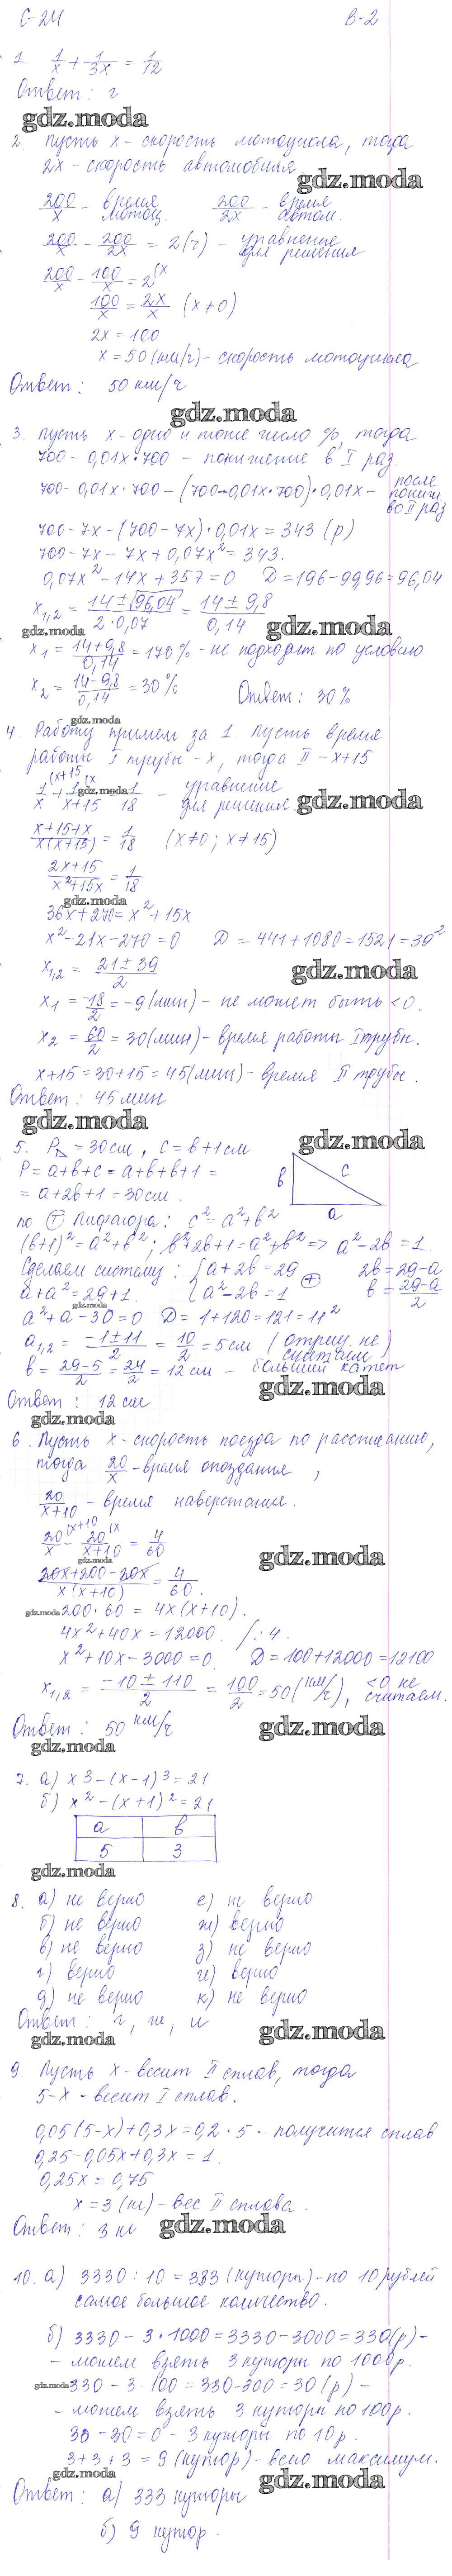 С-24 В-2
1 1/x + 1/3x = 1/12
Ответ: г
gdz.moda
2 Пусть x - скорость мотоцикла, тогда
2x - скорость автомобиля
gdz.moda
200/x - время мотоц. 200/2x - время автом.
200/x - 200/2x = 2(ч) - уравнение для решения
200/x - 100/x = 2 (x
100/x = 2x/x (x ≠ 0)
2x = 100
x = 50 (км/ч) - скорость мотоцикла
Ответ: 50 км/ч
gdz.moda
3. Пусть x - одно и тоже число %, тогда
700 - 0,01x·700 - понижение в I раз.
700 - 0,01x·700 - (700-0,01x·700)·0,01x - после пониж. во II раз
700 - 7x - (700 - 7x)·0,01x = 343 (р)
700 - 7x - 7x + 0,07x² = 343.
0,07x² - 14x + 357 = 0 D = 196 - 99,96 = 96,04
x1,2 = 14 ± √96,04 / 2·0,07 = 14 ± 9,8 / 0,14
gdz.moda
gdz.moda
x1 = 14+9,8 / 0,14 = 170% - не подходит по условию
x2 = 14-9,8 / 0,14 = 30% Ответ: 30%
gdz.moda
4. Работу примем за 1. Пусть время
работы I трубы - x, тогда II - x+15
1/x (x+15 + 1/x+15 (x = 1/18 - уравнение для решения
gdz.moda
gdz.moda
x+15+x / x(x+15) = 1/18 (x≠0; x≠15)
2x+15 / x²+15x = 1/18
gdz.moda
36x + 270 = x² + 15x
x² - 21x - 270 = 0 D = 441 + 1080 = 1521 = 39²
x1,2 = 21 ± 39 / 2
gdz.moda
x1 = -18/2 = -9 (мин) - не может быть < 0.
x2 = 60/2 = 30 (мин) - время работы I трубы.
x+15 = 30+15 = 45 (мин) - время II трубы.
Ответ: 45 мин
gdz.moda
gdz.moda
5. P△ = 30 см, c = b + 1 см
P = a+b+c = a+b+b+1 =
= a+2b+1 = 30 см.
b c a
по Т Пифагора: c² = a² + b²
(b+1)² = a² + b²; b²+2b+1 = a²+b² => a² - 2b = 1.
Сделаем систему: { a + 2b = 29 2b = 29-a
a² - 2b = 1 + b = 29-a / 2
a + a² = 29 + 1.
gdz.moda
a² + a - 30 = 0 D = 1+120 = 121 = 11²
a1,2 = -1 ± 11 / 2 = 10/2 = 5 см (отриц. не считаем)
b = 29-5 / 2 = 24/2 = 12 см - больший катет
gdz.moda
Ответ: 12 см
gdz.moda
6. Пусть x - скорость поезда по расписанию,
тогда 20/x - время опоздания,
20/x+10 - время наверстания.
20/x (x+10 - 20/x+10 (x = 4/60
gdz.moda
gdz.moda
20x+200-20x / x(x+10) = 4/60.
gdz.moda
200·60 = 4x(x+10).
4x² + 40x = 12000. /: 4.
x² + 10x - 3000 = 0. D = 100 + 12000 = 12100
x1,2 = -10 ± 110 / 2 = 100/2 = 50 (км/ч), <0 не считаем.
Ответ: 50 км/ч
gdz.moda
gdz.moda
7. а) x³ - (x-1)³ = 21
б) x² - (x+1)² = 21
а в
5 3
gdz.moda
8. а) не верно е) не верно
б) не верно ж) верно
в) не верно з) не верно
г) верно и) верно
д) не верно к) не верно
Ответ: г, ж, и
gdz.moda
gdz.moda
9. Пусть x - весит II сплав, тогда
5-x - весит I сплав.
0,05(5-x) + 0,3x = 0,2·5 - получится сплав
0,25 - 0,05x + 0,3x = 1.
0,25x = 0,75
x = 3 (кг) - вес II сплава.
Ответ: 3 кг
gdz.moda
10. а) 3330 : 10 = 333 (купюры) - по 10 рублей
самое большое количество.
б) 3330 - 3·1000 = 3330 - 3000 = 330 (р) -
- можем взять 3 купюры по 1000 р.
gdz.moda
330 - 3·100 = 330 - 300 = 30 (р) -
- можем взять 3 купюры по 100 р.
30 - 30 = 0 - 3 купюры по 10 р.
3+3+3 = 9 (купюр) - всего максимум.
gdz.moda
gdz.moda
Ответ: а) 333 купюры
б) 9 купюр.